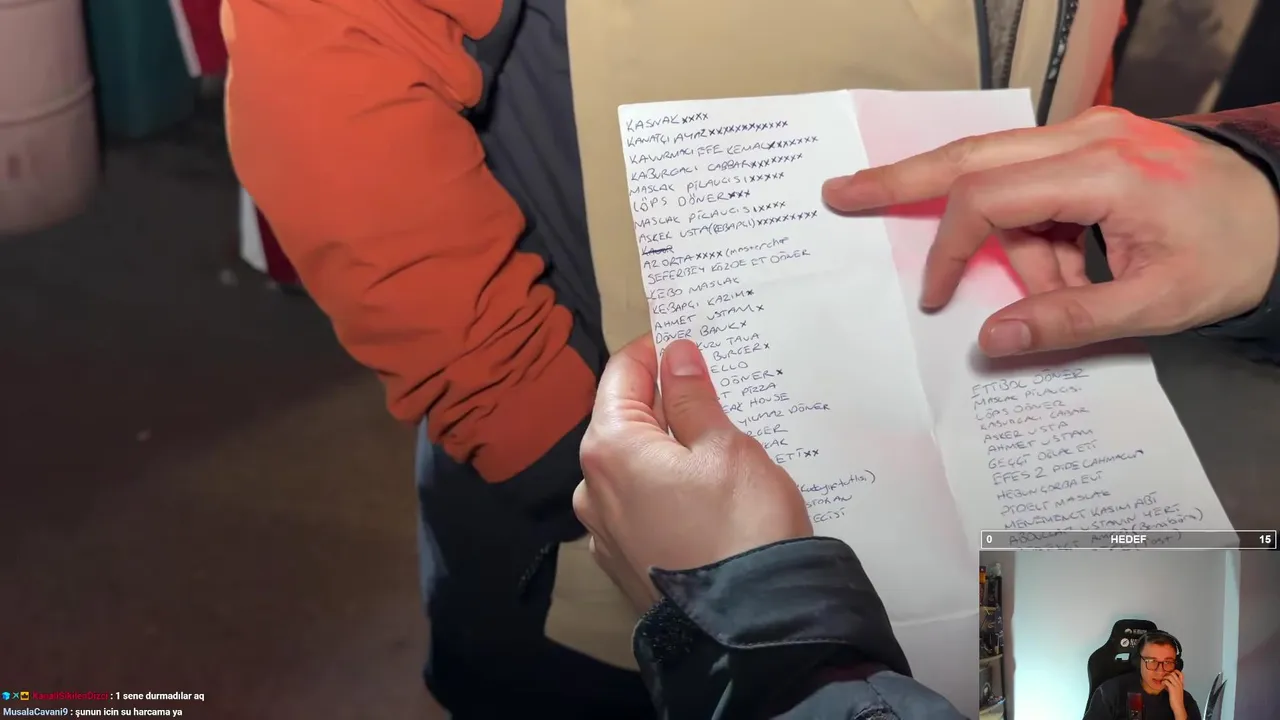 KASNAKxxxx
KANATÇI AYAZxxxxxxxxxxxx
KAVURMACI EFE KEMALxxxxxxx
KABURGACI CABBARxxxxxxxx
MASLAK PİLAVCISIxxxxx
LÖPS DÖNERxxx
MASLAK PİLAVCISIxxxxx
ASKER USTA(KEBAPÇI)xxxxxxxxx
AZ ORTAxxxx(masterchef
SEFERBEY KÖZDE ET DÖNER
KEBO MASLAK
KEBAPÇI KAZIMx
AHMET USTAMx
DÖNER BANKx
KUZU TAVA
BURGERx
ELLO
DÖNERx
T PİZZA
EAK HOUSE
YILMAZ DÖNER
RGER
KAK
ETİxx
ETTİBOL DÖNER
MASLAK PİLAVCISI
LÖPS DÖNER
KABURGACI CABBAR
ASKER USTA
AHMET USTAM
GEÇGİ OĞLAK ETİ
EFES 2 PİDE LAHMACUN
HEBUN ÇORBA EVİ
PİDECİ MASLAK
MENEMENCİ KASIM ABİ
ABDULLAH USTANIN YERİ
0 HEDEF 15
: 1 sene durmadılar aq
MusalaCavani9 : şunun icin su harcama ya